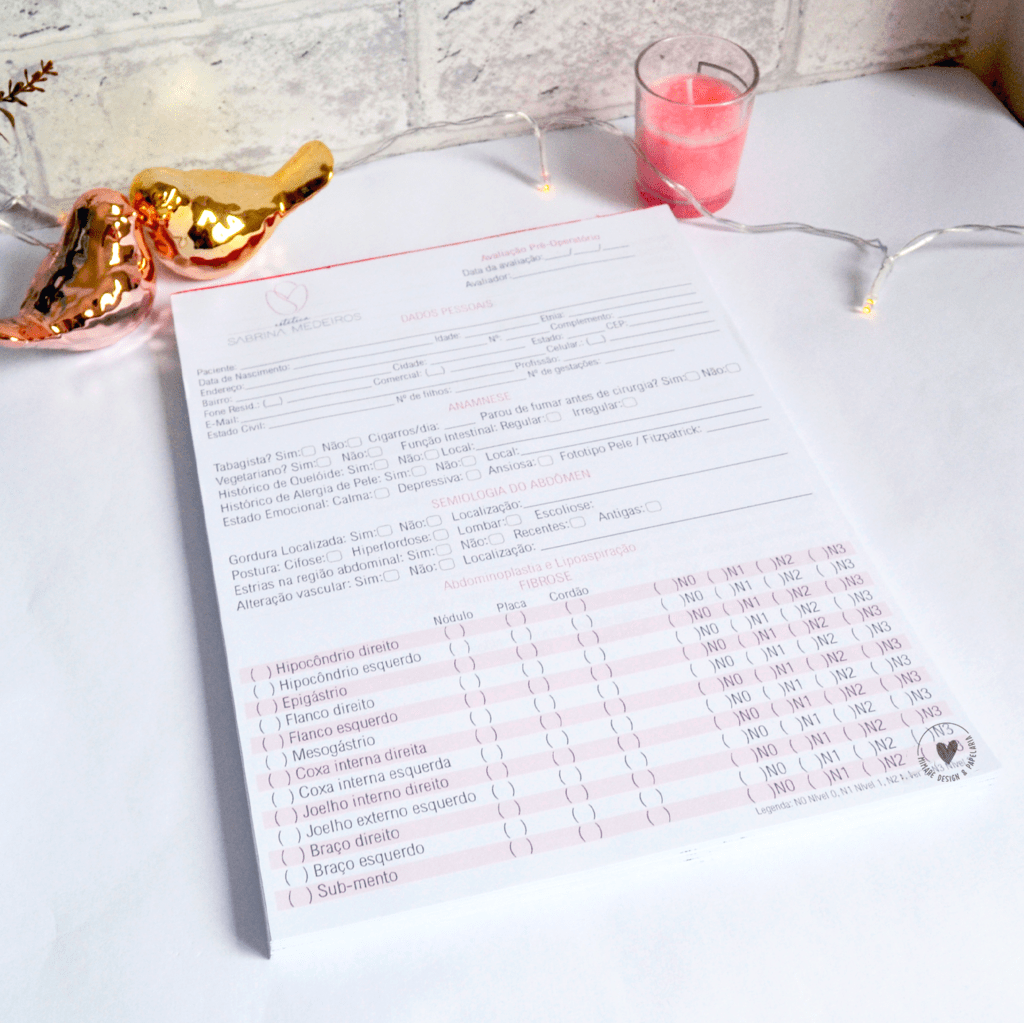 Avaliação Pré-Operatório
Data da avaliação:____/____/____
Avaliador:
estética
SABRINA MEDEIROS
DADOS PESSOAIS
Paciente:
Data de Nascimento: Idade: Etnia:
Endereço: Nº: Complemento:
Bairro: Cidade: Estado: CEP:
Fone Resid.: (__) Comercial: (__) Celular.: (__)
E-Mail: Profissão:
Estado Civil: Nº de filhos: Nº de gestações:
ANAMNESE
Tabagista? Sim: Não: Cigarros/dia: Parou de fumar antes de cirurgia? Sim: Não:
Vegetariano? Sim: Não: Função Intestinal: Regular: Irregular:
Histórico de Quelóide: Sim: Não: Local:
Histórico de Alergia de Pele: Sim: Não: Local:
Estado Emocional: Calma: Depressiva: Ansiosa: Fototipo Pele / Fitzpatrick:
SEMIOLOGIA DO ABDÔMEN
Gordura Localizada: Sim: Não: Localização:
Postura: Cifose: Hiperlordose: Lombar: Escoliose:
Estrias na região abdominal: Sim: Não: Recentes: Antigas:
Alteração vascular: Sim: Não: Localização:
Abdominoplastia e Lipoaspiração
FIBROSE
Nódulo Placa Cordão
( ) Hipocôndrio direito ( ) ( ) ( ) ( )N0 ( )N1 ( )N2 ( )N3
( ) Hipocôndrio esquerdo ( ) ( ) ( ) ( )N0 ( )N1 ( )N2 ( )N3
( ) Epigástrio ( ) ( ) ( ) ( )N0 ( )N1 ( )N2 ( )N3
( ) Flanco direito ( ) ( ) ( ) ( )N0 ( )N1 ( )N2 ( )N3
( ) Flanco esquerdo ( ) ( ) ( ) ( )N0 ( )N1 ( )N2 ( )N3
( ) Mesogástrio ( ) ( ) ( ) ( )N0 ( )N1 ( )N2 ( )N3
( ) Coxa interna direita ( ) ( ) ( ) ( )N0 ( )N1 ( )N2 ( )N3
( ) Coxa interna esquerda ( ) ( ) ( ) ( )N0 ( )N1 ( )N2 ( )N3
( ) Joelho interno direito ( ) ( ) ( ) ( )N0 ( )N1 ( )N2 ( )N3
( ) Joelho externo esquerdo ( ) ( ) ( ) ( )N0 ( )N1 ( )N2 ( )N3
( ) Braço direito ( ) ( ) ( ) ( )N0 ( )N1 ( )N2 ( )N3
( ) Braço esquerdo ( ) ( ) ( ) ( )N0 ( )N1 ( )N2
( ) Sub-mento ( ) ( ) ( ) ( )N0 ( )N1 ( )N2
Legenda: N0 Nível 0, N1 Nível 1, N2
DESIGN & PAPELARIA